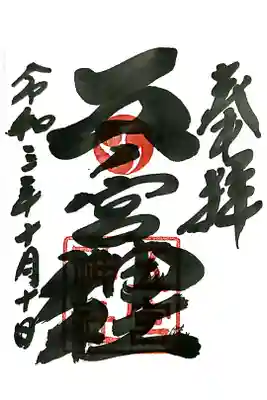 奉拝
五宮神社
令和三年十月十日